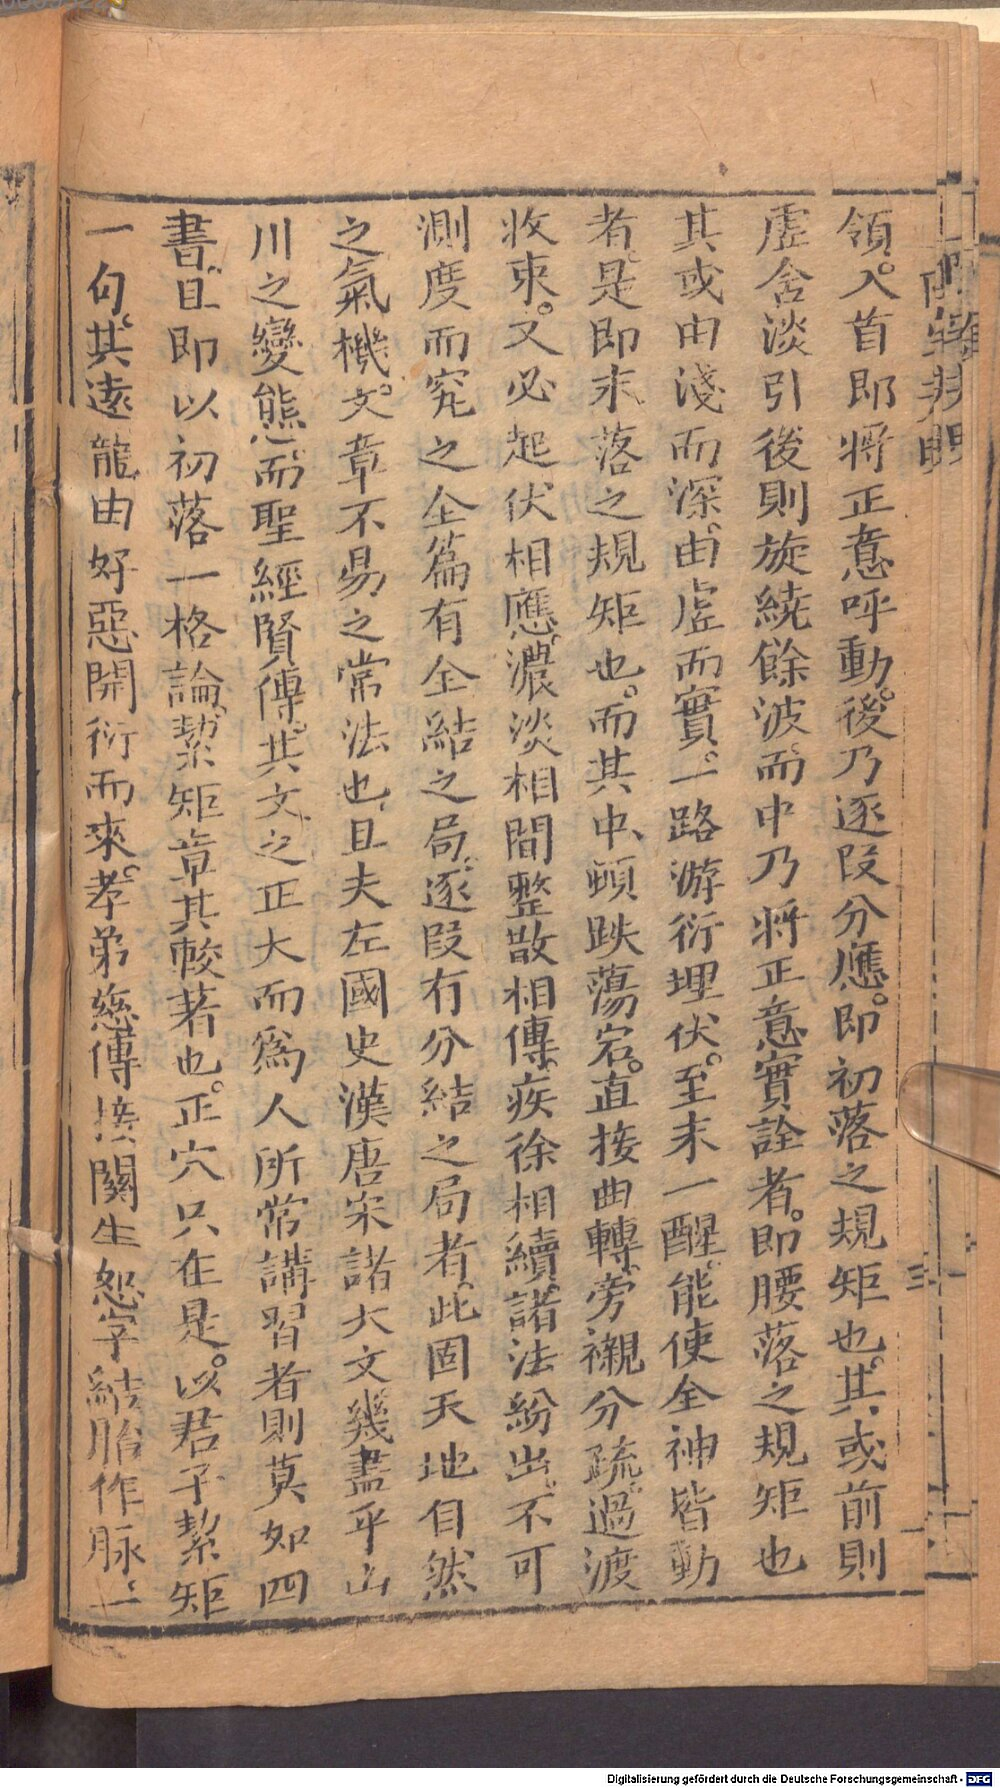 領。入首即將正意呼動。後乃逐段分應。即初落之規矩也。其或前則
虛含淡引後則旋繞餘波。而中乃將正意實詮者。即腰落之規矩也
其或由淺而深。由虛而實。一路游衍埋伏。至末一醒。能使全神皆動
者。是即末落之規矩也。而其中頓跌蕩宕。直接曲轉。旁襯分疏。過渡
收束。又必起伏相應。濃淡相間整散相傳。疾徐相續。諸法紛出。不可
測度而究之全篇有全結之局。逐段有分結之局者。此固天地自然
之氣機。文章不易之常法也。且夫左國史漢唐宋諸大文幾盡乎山
川之變態。而聖經賢傳。其文之正大而爲人所常講習者則莫如四
書。且即以初落一格論。絜矩章其較著也。正穴只在是。以君子絜矩
一句。其遠龍由好惡開衍而來。孝弟慈傳接關生恕字結胎作脉上
Digitalisierung gefördert durch die Deutsche Forschungsgemeinschaft - DFG